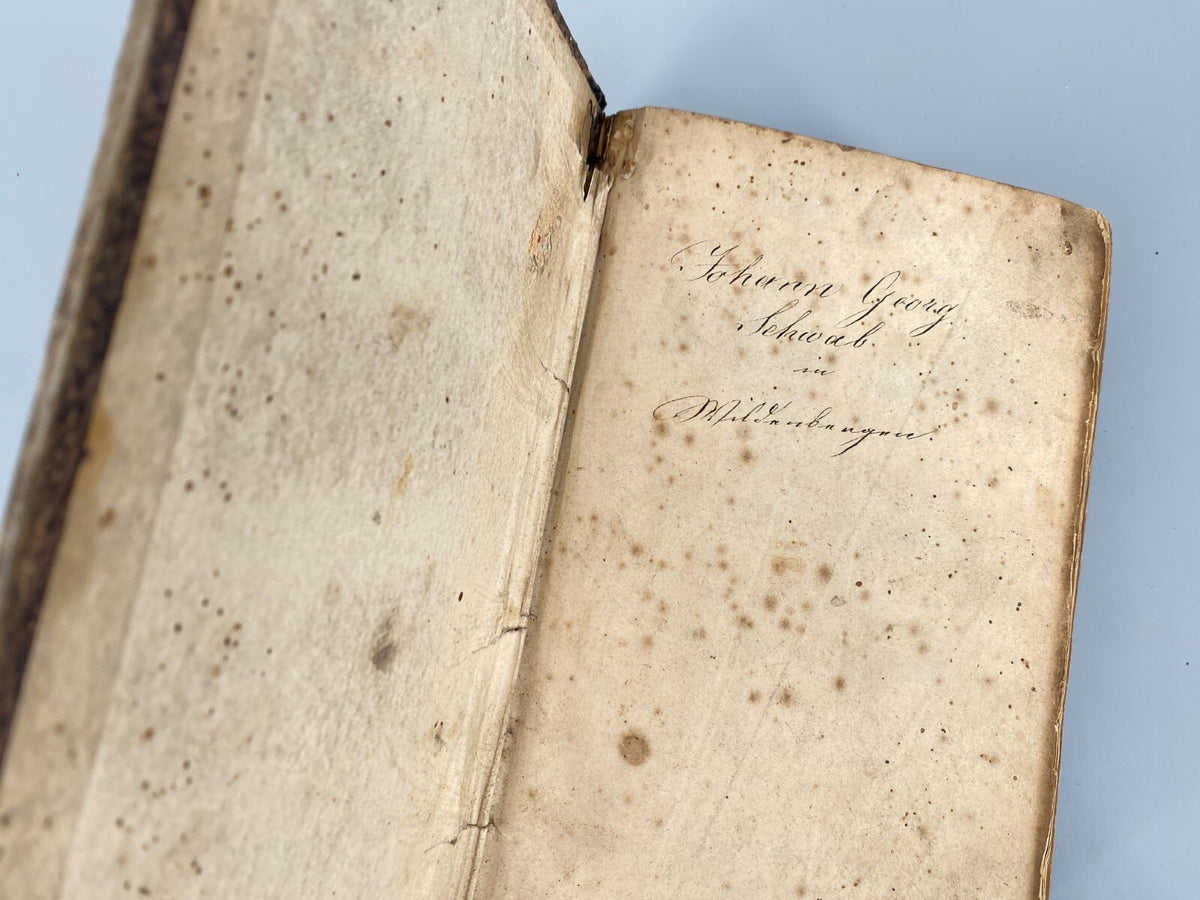 Johann Georg
Schwab.
in
Wildenbergen.